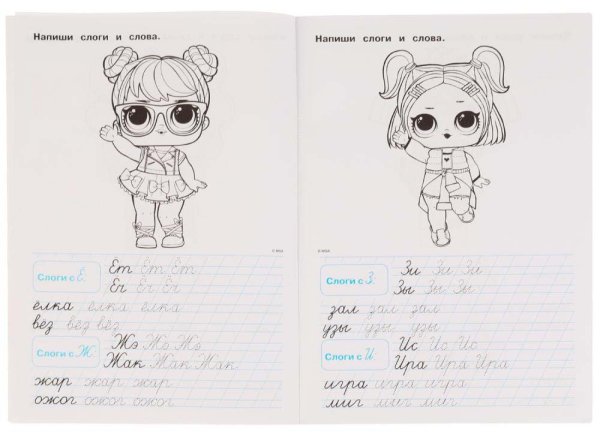 Напиши слоги и слова.
© MGA
Слоги с Ё.
Ёт Ёт Ёт
Ёг Ёг Ёг
ёлка ёлка ёлка
вёз вёз вёз
Слоги с Ж.
Жэ Жэ Жэ
Жак Жак Жак
жар жар жар
ожог ожог ожог
Напиши слоги и слова.
© MGA
Слоги с З.
Зи Зи Зи
Зы Зы Зы
зал зал зал
узы узы узы
Слоги с И.
Ис Ис Ис
Ира Ира Ира
игра игра игра
миг миг миг